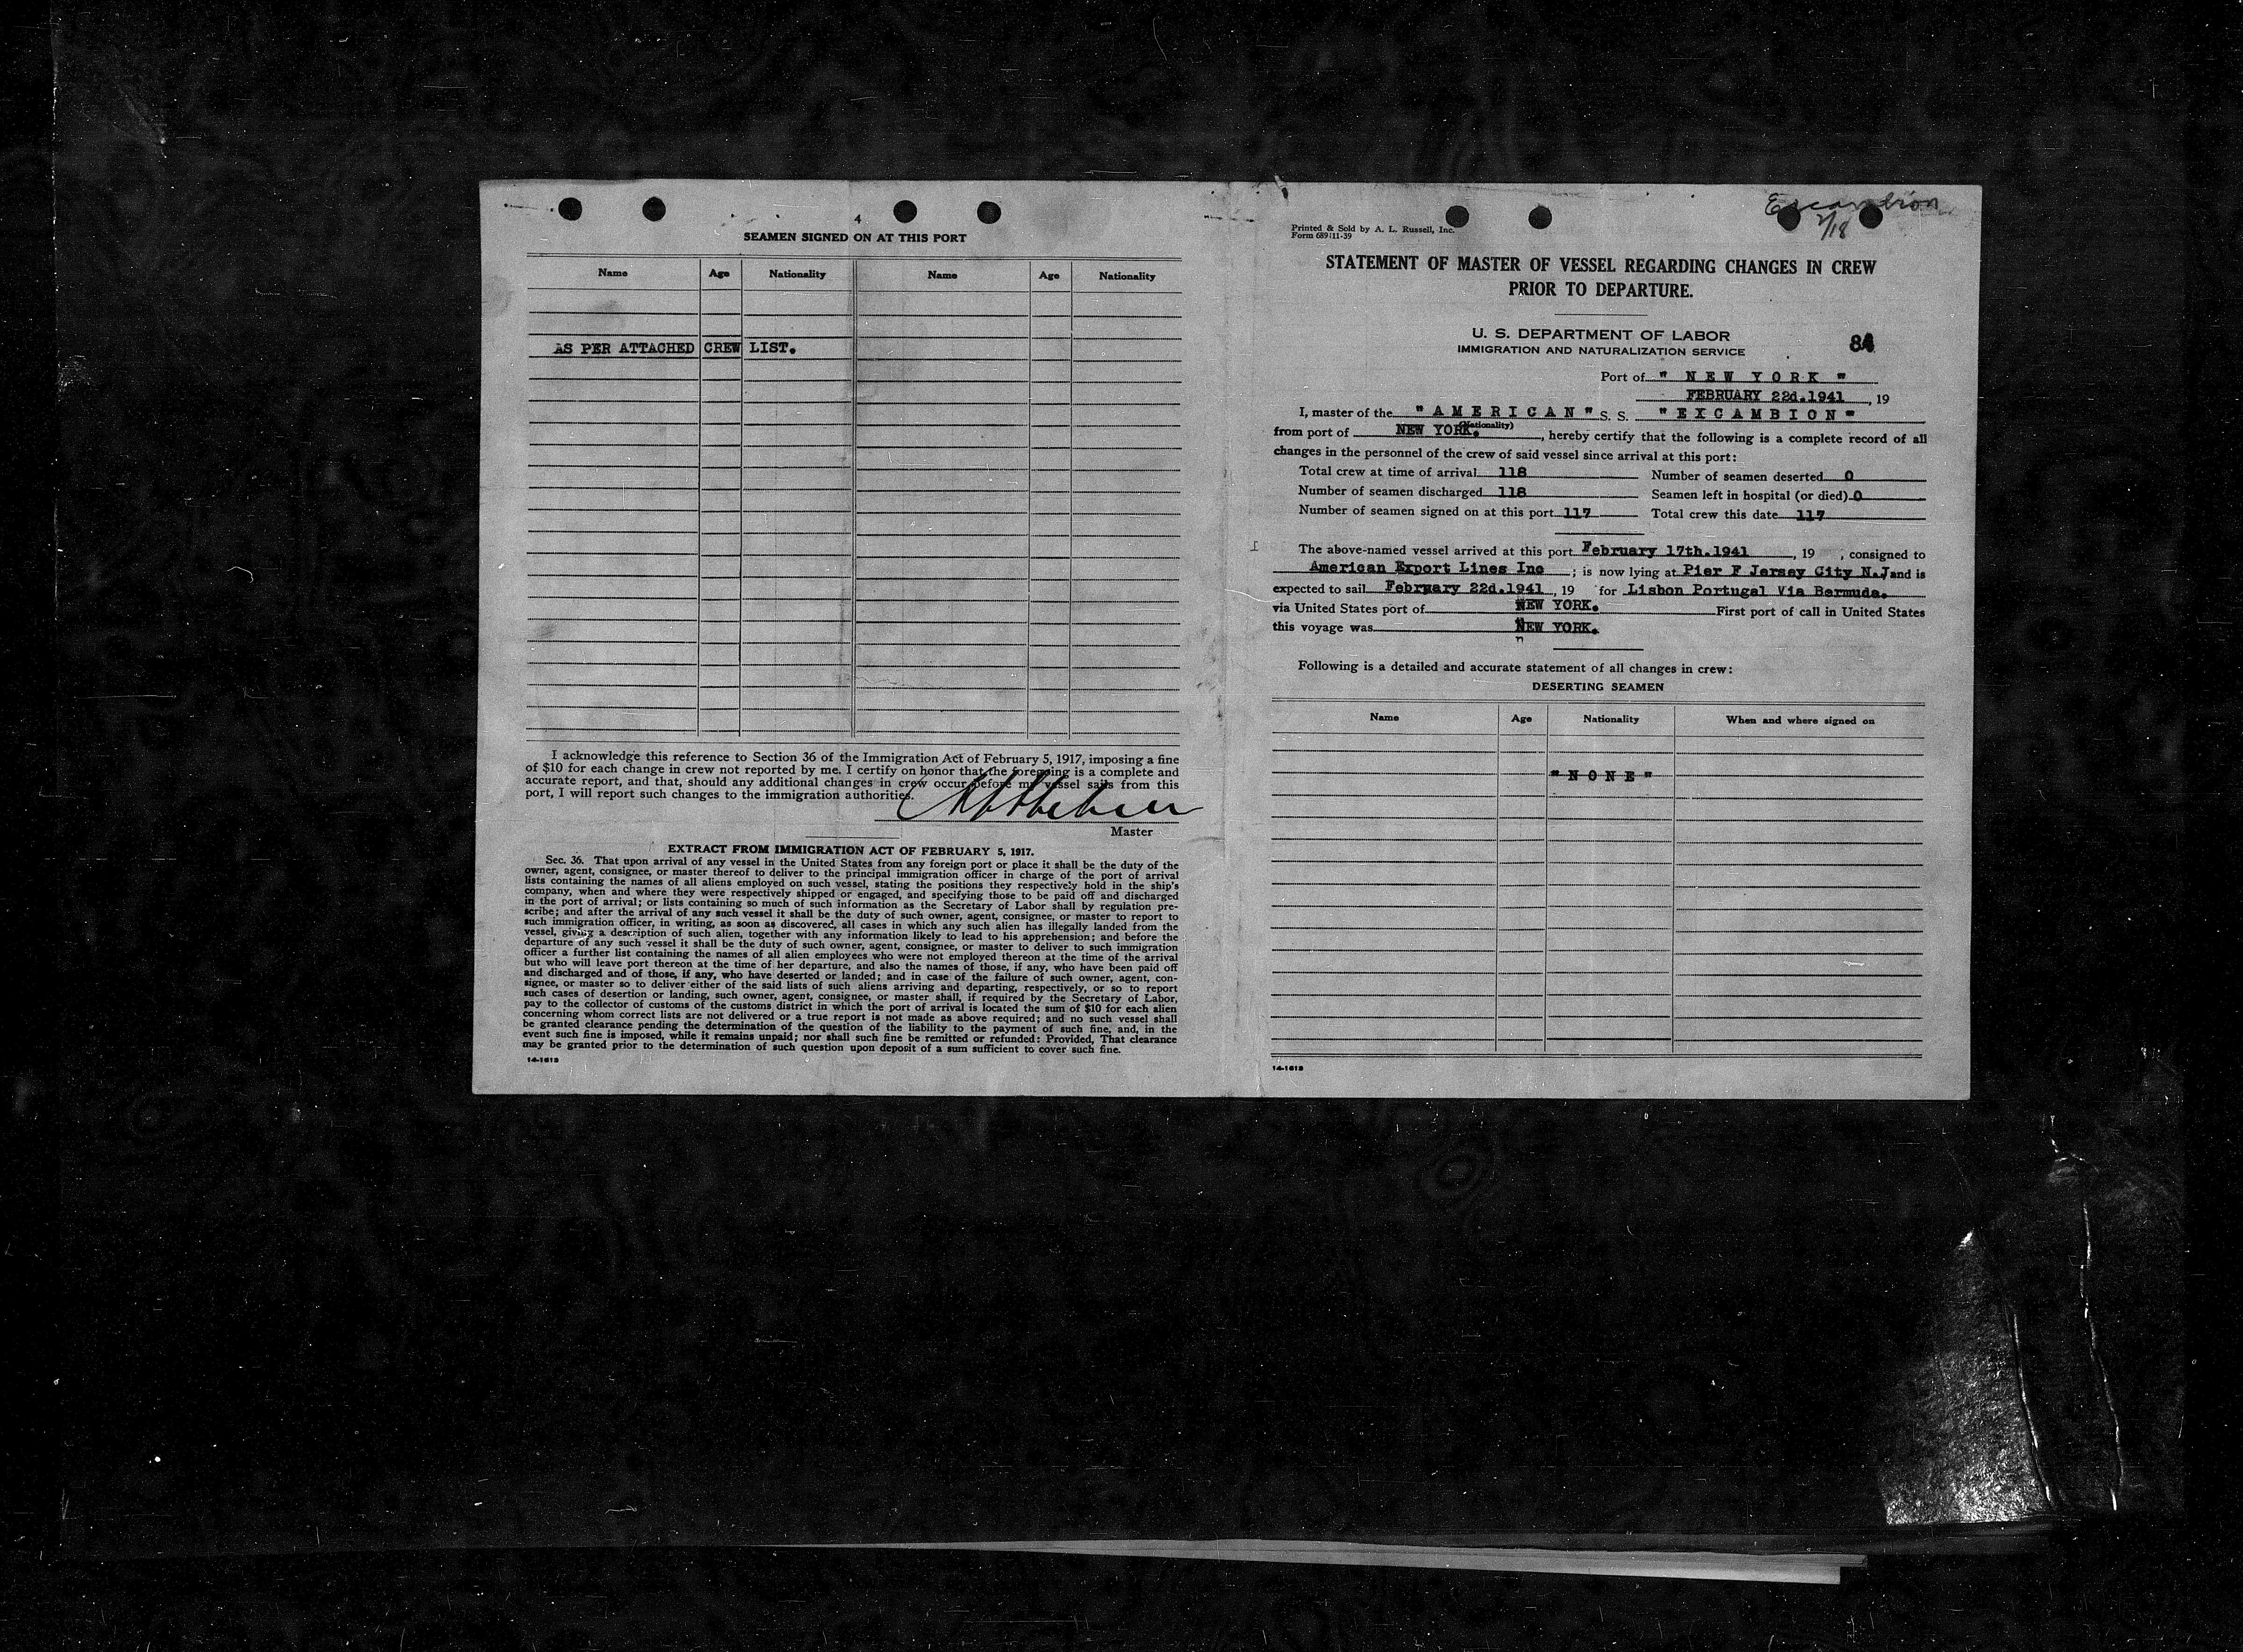 4
SEAMEN SIGNED ON AT THIS PORT
Name Age Nationality Name Age Nationality
AS PER ATTACHED CREW LIST.
I acknowledge this reference to Section 36 of the Immigration Act of February 5, 1917, imposing a fine
of $10 for each change in crew not reported by me. I certify on honor that the foregoing is a complete and
accurate report, and that, should any additional changes in crew occur before my vessel sails from this
port, I will report such changes to the immigration authorities.
Master
EXTRACT FROM IMMIGRATION ACT OF FEBRUARY 5, 1917.
Sec. 36. That upon arrival of any vessel in the United States from any foreign port or place it shall be the duty of the
owner, agent, consignee, or master thereof to deliver to the principal immigration officer in charge of the port of arrival
lists containing the names of all aliens employed on such vessel, stating the positions they respectively hold in the ship's
company, when and where they were respectively shipped or engaged, and specifying those to be paid off and discharged
in the port of arrival; or lists containing so much of such information as the Secretary of Labor shall by regulation pre-
scribe; and after the arrival of any such vessel it shall be the duty of such owner, agent, consignee, or master to report to
such immigration officer, in writing, as soon as discovered, all cases in which any such alien has illegally landed from the
vessel, giving a description of such alien, together with any information likely to lead to his apprehension; and before the
departure of any such vessel it shall be the duty of such owner, agent, consignee, or master to deliver to such immigration
officer a further list containing the names of all alien employees who were not employed thereon at the time of the arrival
but who will leave port thereon at the time of her departure, and also the names of those, if any, who have been paid off
and discharged and of those, if any, who have deserted or landed; and in case of the failure of such owner, agent, con-
signee, or master so to deliver either of the said lists of such aliens arriving and departing, respectively, or so to report
such cases of desertion or landing, such owner, agent, consignee, or master shall, if required by the Secretary of Labor,
pay to the collector of customs of the customs district in which the port of arrival is located the sum of $10 for each alien
concerning whom correct lists are not delivered or a true report is not made as above required; and no such vessel shall
be granted clearance pending the determination of the question of the liability to the payment of such fine, and, in the
event such fine is imposed, while it remains unpaid; nor shall such fine be remitted or refunded: Provided, That clearance
may be granted prior to the determination of such question upon deposit of a sum sufficient to cover such fine.
14-1613
Excambion
2/18
Printed & Sold by A. L. Russell, Inc.
Form 689 11-39
STATEMENT OF MASTER OF VESSEL REGARDING CHANGES IN CREW
PRIOR TO DEPARTURE.
U. S. DEPARTMENT OF LABOR
IMMIGRATION AND NATURALIZATION SERVICE
84
Port of " N E W Y O R K "
FEBRUARY 22d.1941, 19
I, master of the " A M E R I C A N " S. S. " E X C A M B I O N "
(Nationality)
from port of NEW YORK., hereby certify that the following is a complete record of all
changes in the personnel of the crew of said vessel since arrival at this port:
Total crew at time of arrival 118 Number of seamen deserted 0
Number of seamen discharged 118 Seamen left in hospital (or died) 0
Number of seamen signed on at this port 117 Total crew this date 117
The above-named vessel arrived at this port February 17th.1941, 19 , consigned to
American Export Lines Inc ; is now lying at Pier F Jersey City N.J and is
expected to sail February 22d.1941, 19 for Lisbon Portugal Via Bermuda.
via United States port of NEW YORK. First port of call in United States
this voyage was NEW YORK.
Following is a detailed and accurate statement of all changes in crew:
DESERTING SEAMEN
Name Age Nationality When and where signed on
" N O N E "
14-1613